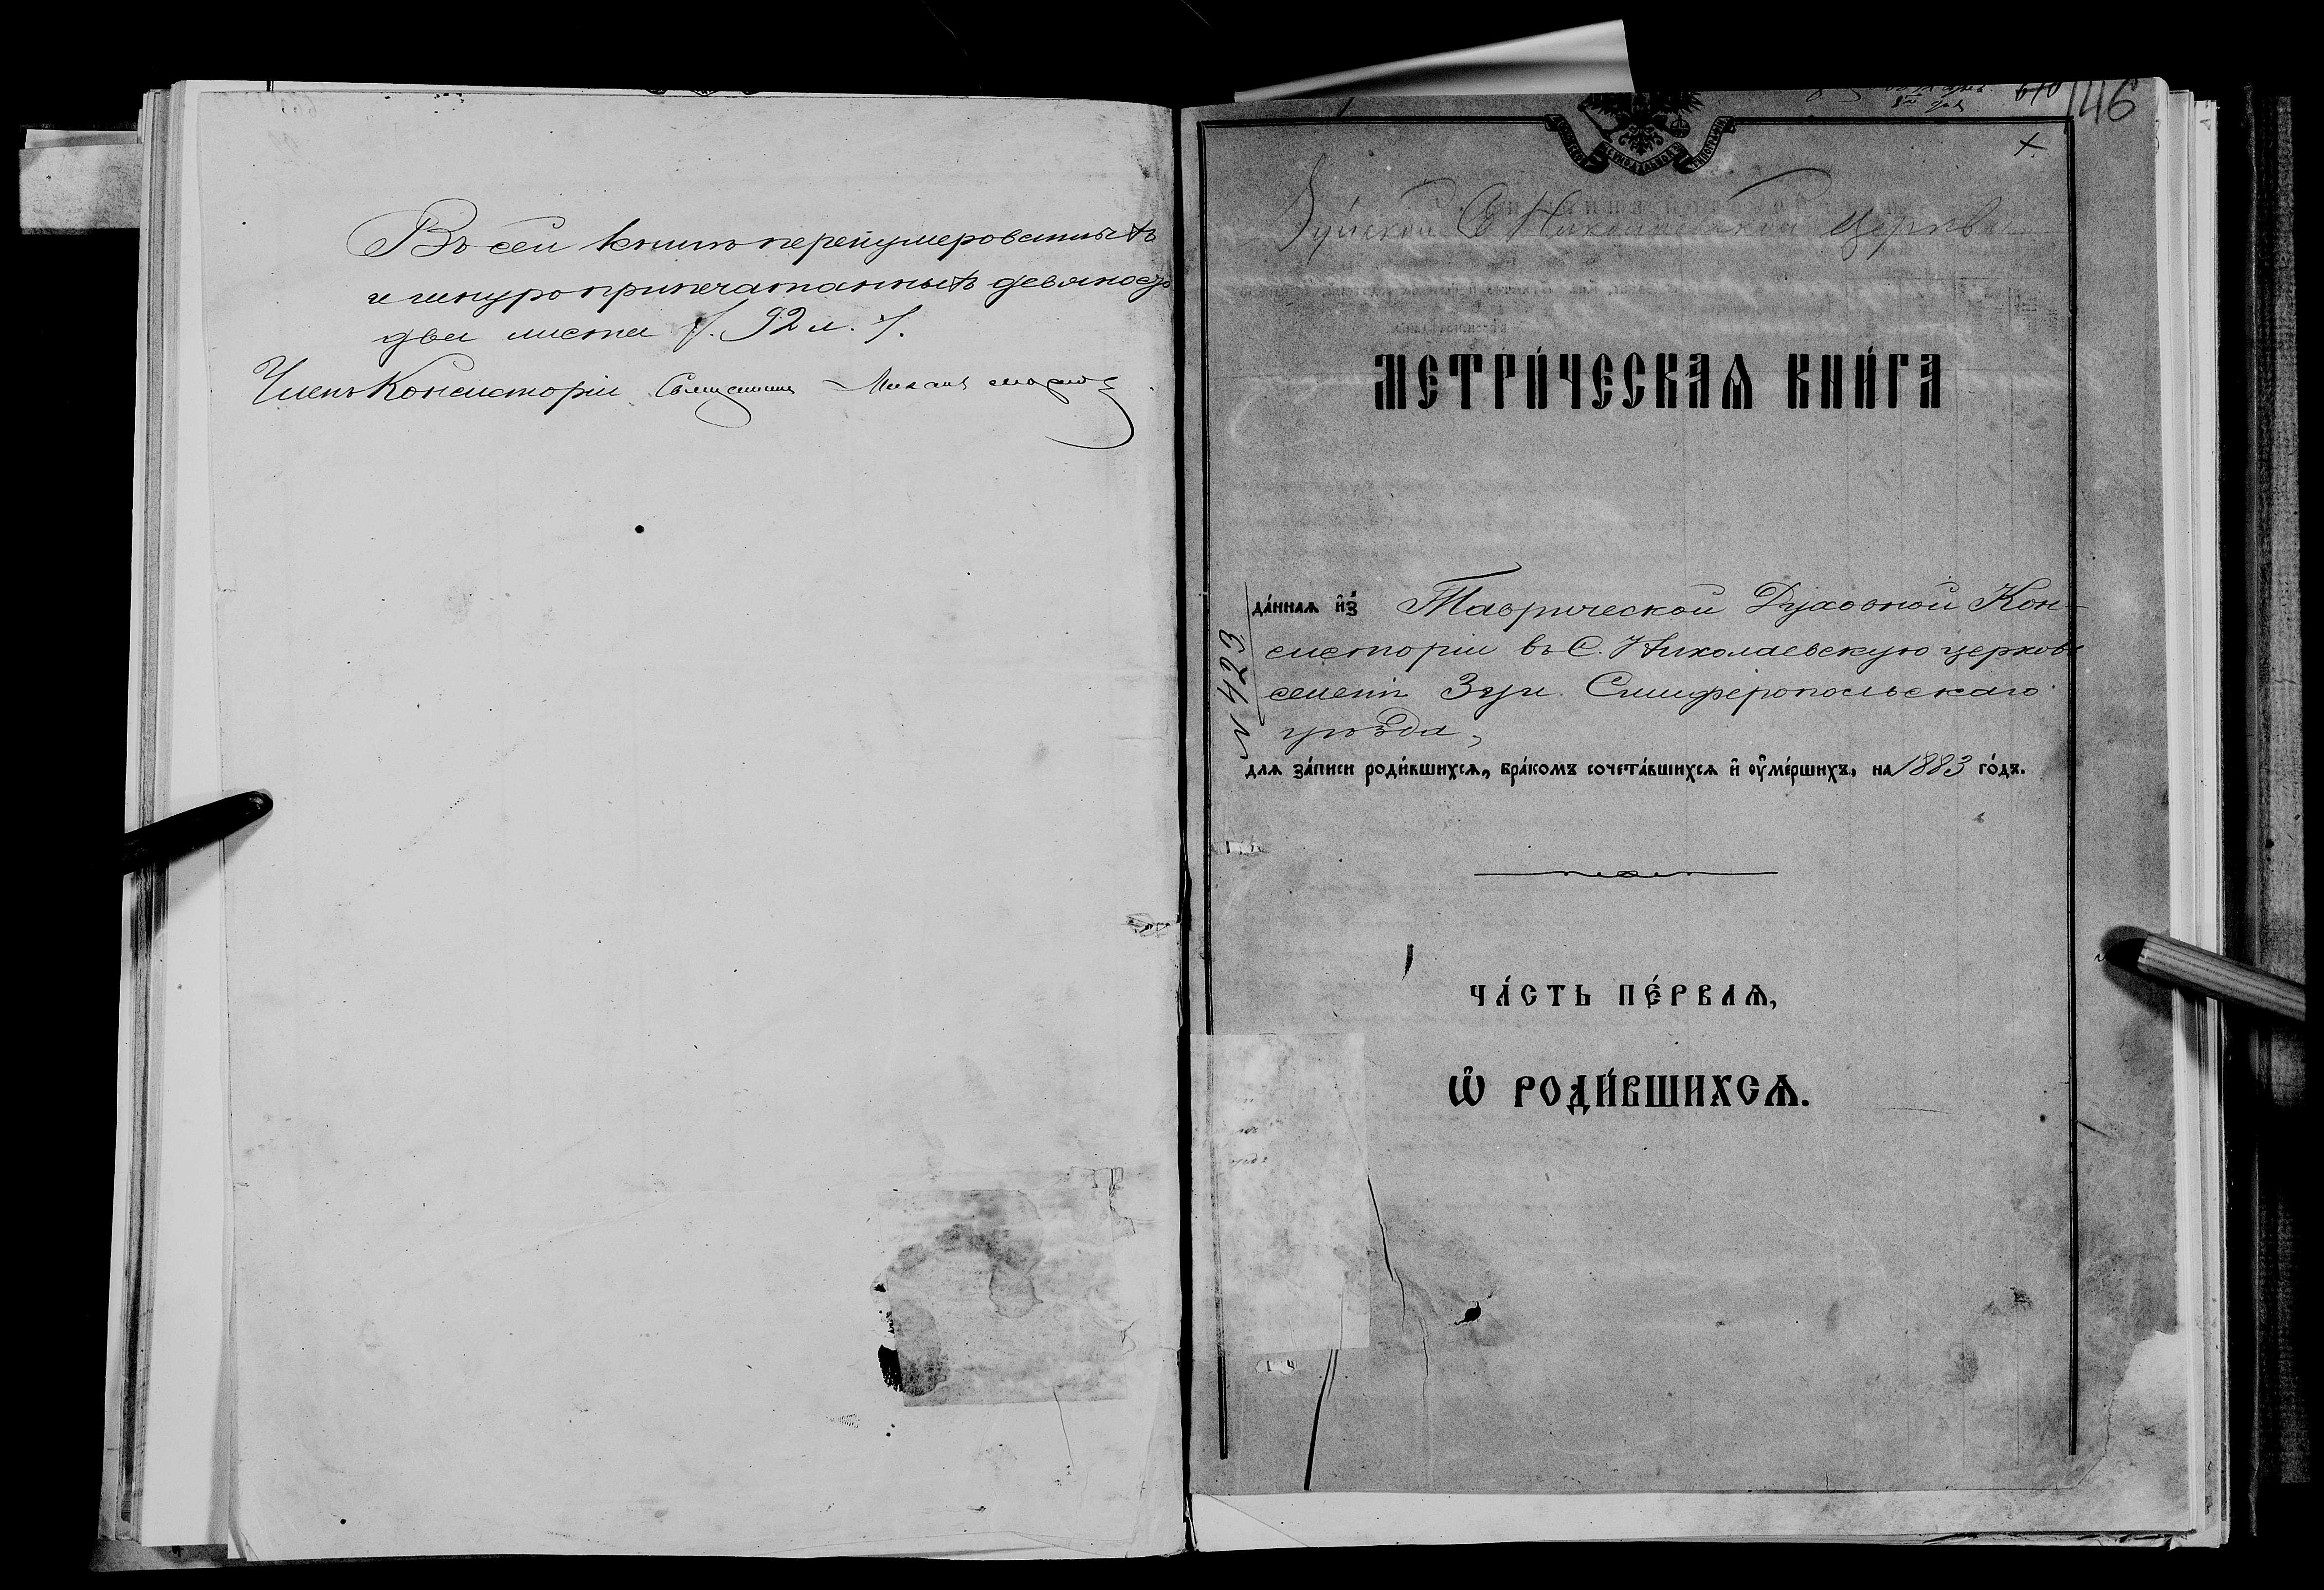 Въ сей книгѣ перенумерованныхъ
и шнуроприпечатанныхъ девяносто
два листа /. 92 л. /.
Членъ Консисторіи Священникъ
610 146
Зуйской С Николаевской Церкви
МЕТРИ́ЧЕСКАѦ КНИ́ГА
да́ннаѧ и҆з̾ Таврической Духовной Кон-
систоріи въ С. Николаевскую церковь
селенія Зуи Симферопольскаго
уѣзда,
№ 429
длѧ за́писи роди́вшихсѧ, бра́комъ сочета́вшихсѧ и҆ ѹ҆ме́ршихъ, на 1883 го́дъ.
ЧА́СТЬ ПЕ́РВАѦ,
Ѡ҆ РОДИ́ВШИХСѦ.